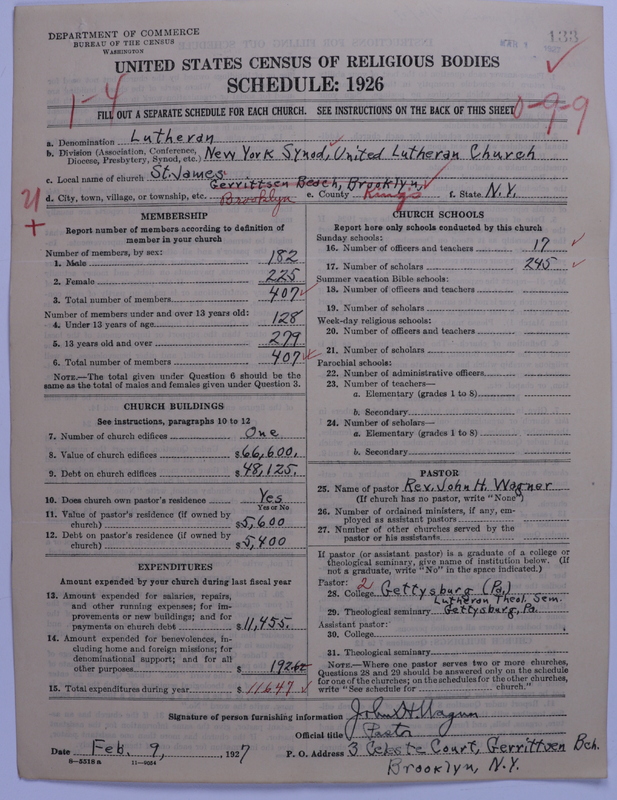 DEPARTMENT OF COMMERCE
BUREAU OF THE CENSUS
WASHINGTON
133
UNITED STATES CENSUS OF RELIGIOUS BODIES
SCHEDULE: 1926
1-4
FILL OUT A SEPARATE SCHEDULE FOR EACH CHURCH. SEE INSTRUCTIONS ON THE BACK OF THIS SHEET
0-9-9
a. Denomination Lutheran
b. Division (Association, Conference, Diocese, Presbytery, Synod, etc.) New York Synod, United Lutheran Church
c. Local name of church St. James
Gerrittsen Beach, Brooklyn,
d. City, town, village, or township, etc. Brooklyn e. County Kings f. State N.Y.
MEMBERSHIP
Report number of members according to definition of
member in your church
Number of members, by sex:
1. Male 182
2. Female 225
3. Total number of members 407
Number of members under and over 13 years old:
4. Under 13 years of age 128
5. 13 years old and over 279
6. Total number of members 407
NOTE.—The total given under Question 6 should be the
same as the total of males and females given under Question 3.
CHURCH BUILDINGS
See instructions, paragraphs 10 to 12
7. Number of church edifices One
8. Value of church edifices $66,600.
9. Debt on church edifices $48,125.
10. Does church own pastor's residence Yes
Yes or No
11. Value of pastor's residence (if owned by
church) $5,600
12. Debt on pastor's residence (if owned by
church) $5,400
EXPENDITURES
Amount expended by your church during last fiscal year
13. Amount expended for salaries, repairs,
and other running expenses; for im-
provements or new buildings; and for
payments on church debt $11,455.
14. Amount expended for benevolences, in-
cluding home and foreign missions; for
denominational support; and for all
other purposes $ 192.
15. Total expenditures during year $ 11647
CHURCH SCHOOLS
Report here only schools conducted by this church
Sunday schools:
16. Number of officers and teachers 17
17. Number of scholars 245
Summer vacation Bible schools:
18. Number of officers and teachers
19. Number of scholars
Week-day religious schools:
20. Number of officers and teachers
21. Number of scholars
Parochial schools:
22. Number of administrative officers
23. Number of teachers—
a. Elementary (grades 1 to 8)
b. Secondary
24. Number of scholars—
a. Elementary (grades 1 to 8)
b. Secondary
PASTOR
25. Name of pastor Rev. John H. Wagner
(If church has no pastor, write "None")
26. Number of ordained ministers, if any, em-
ployed as assistant pastors
27. Number of other churches served by the
pastor or his assistants
If pastor (or assistant pastor) is a graduate of a college or
theological seminary, give name of institution below. (If
not a graduate, write "No" in the space indicated.)
Pastor: 2
28. College Gettysburg (Pa.)
Lutheran Theol. Sem.
29. Theological seminary Gettysburg, Pa.
Assistant pastor:
30. College
31. Theological seminary
NOTE.—Where one pastor serves two or more churches,
Questions 28 and 29 should be answered only on the schedule
for one of the churches; on the schedules for the other churches,
write "See schedule for ______ church."
Signature of person furnishing information John H. Wagner
Official title Pastor
Date Feb. 9, 1927
P. O. Address 3 Celeste Court, Gerrittsen Bch.
Brooklyn, N.Y.
8-5518 a 11-9054